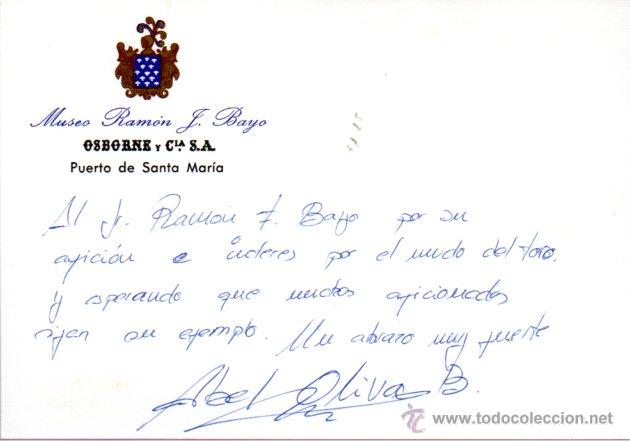 Museo Ramón J. Bayo
OSBORNE Y CÍA. S.A.
Puerto de Santa María
Al Sr. Ramón F. Bayo por su
afición e interes por el mundo del toro,
y esperando que muchos aficionados
sijan su ejemplo. Un abrazo muy fuerte
Abel Oliva B.
www.todocoleccion.net